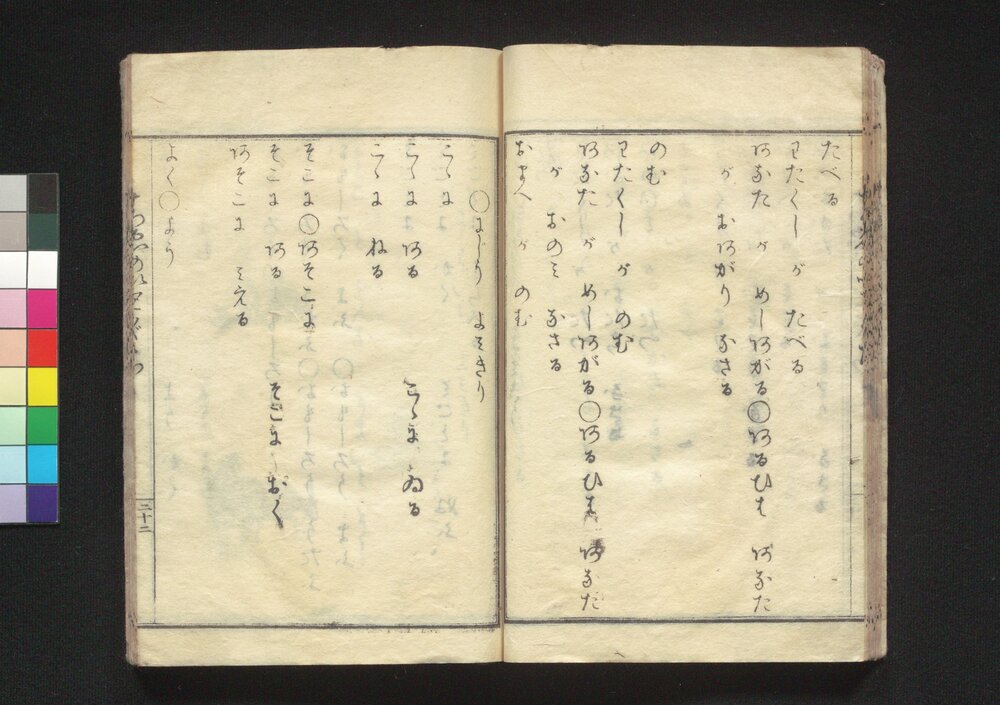 たべる
わたくし が たべる
あなた が めしあがる○あるひは あなた
が おあがり なさる
のむ
わたくし が のむ
あなた が めしあがる○あるひは あなた
が おのみ なさる
おまへ が のむ
○ば志よう よみきり
こゝに
こゝに ある こゝに ゐる
こゝに ねる
そこに○あそこに
そこに ある そこに おく
あそこに みえる
よく○よう
三十二